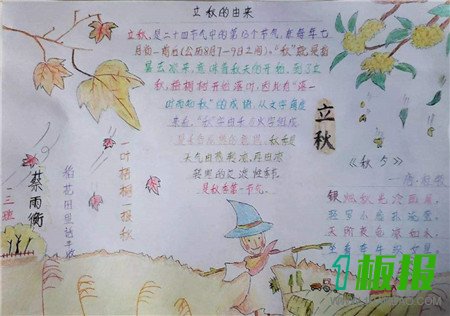 立秋的由来
立秋，是二十四节气中的第13个节气，在每年七
月的一前后(公历8月7-9日之间)。“秋”就是指
暑去凉来，意味着秋天的开始。到了立
秋，梧桐树开始落叶，因此有“落一
叶而知秋”的成语。从文字角度
来看，“秋”字由禾与火字组成
是禾谷成熟的意思。秋季是
天气由热转凉，再由凉
转寒的过渡性季节
是秋季第一个节气。
立秋
《秋夕》
唐·杜牧
银烛秋光冷画屏，
轻罗小扇扑流萤。
天阶夜色凉如水，
坐看牵牛织女星
一叶梧桐一报秋
稻花田里话丰收
蔡雨衡
一三班
板报